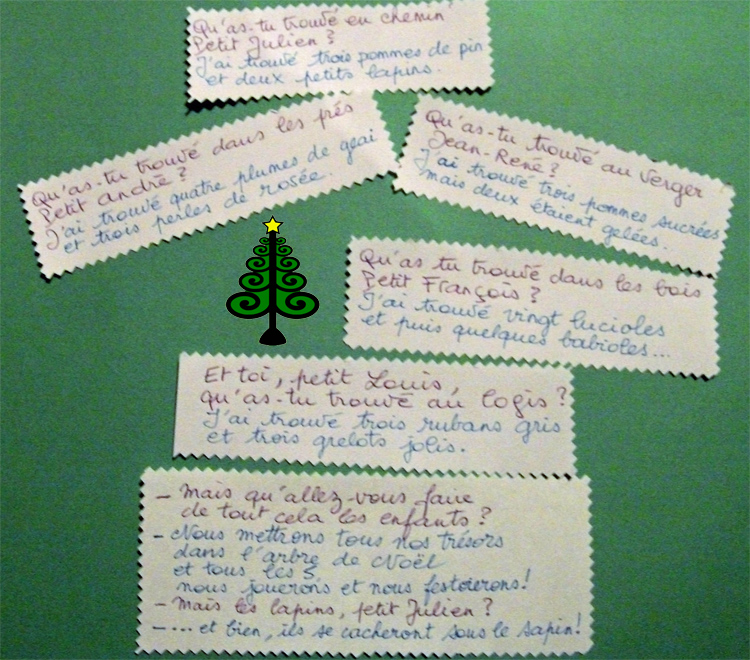 Qu'as-tu trouvé en chemin
Petit Julien ?
J'ai trouvé trois pommes de pin
et deux petits lapins.
Qu'as-tu trouvé dans les prés
Petit André ?
J'ai trouvé quatre plumes de geai
et trois perles de rosée.
Qu'as-tu trouvé au verger
Jean-René ?
J'ai trouvé trois pommes sucrées
mais deux étaient gelées.
Qu'as-tu trouvé dans les bois
Petit François ?
J'ai trouvé vingt lucioles
et puis quelques babioles...
Et toi, petit Louis,
qu'as-tu trouvé au logis ?
J'ai trouvé trois rubans gris
et trois grelots jolis.
- Mais qu'allez-vous faire
de tout cela les enfants ?
- Nous mettrons tous nos trésors
dans l'arbre de Noël
et tous les 5,
nous jouerons et nous festoierons !
- Mais les lapins, petit Julien ?
- ... et bien, ils se cacheront sous le sapin !